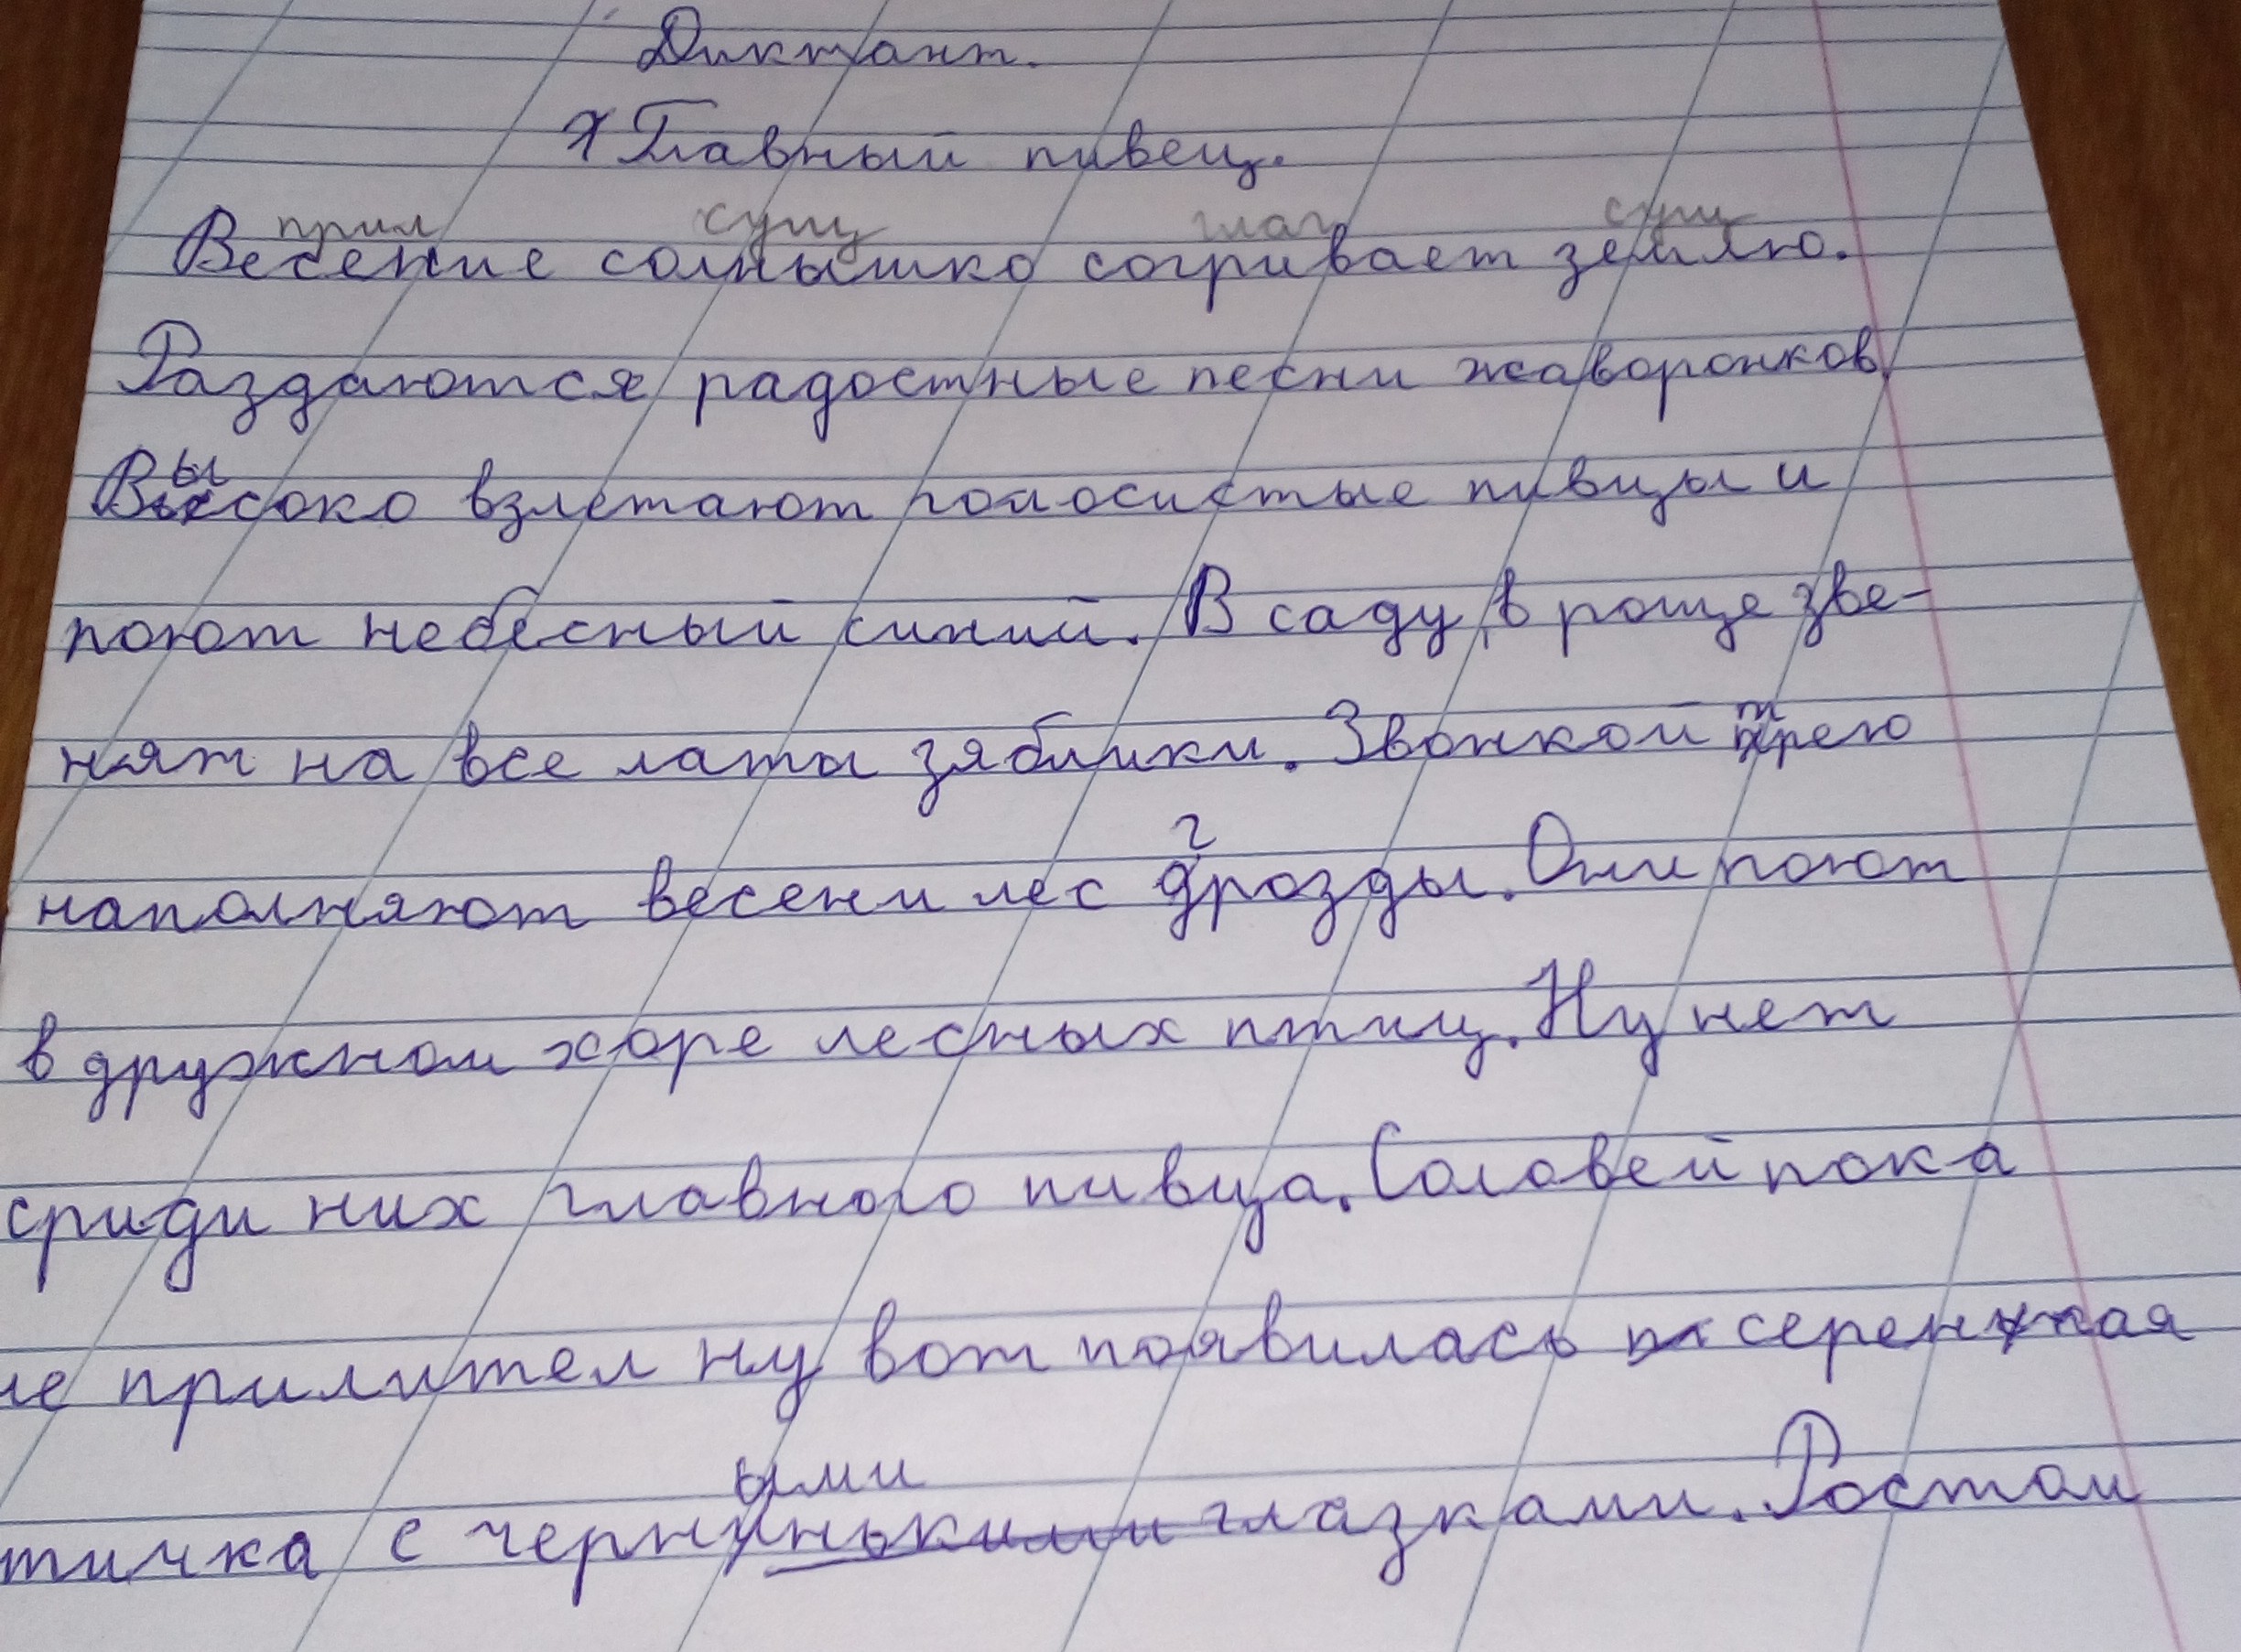 Диктант.
Главный пивец.
прил сущ глаг сущ
Весение солнышко согривает землю.
Раздаются радостные песни жаворонков.
Высоко взлетают голосистые пивцы и
поют небесный синий. В саду, в роще зве-
нят на все латы зяблики. Звонкой трею
наполняют весени лес дрозды. Они поют
в дружном хоре лесных птиц. Ну нет
сриди них главного пивца. Соловей пока
не прилител ну вот появилась серенкая
тичка с черными глазками. Ростом